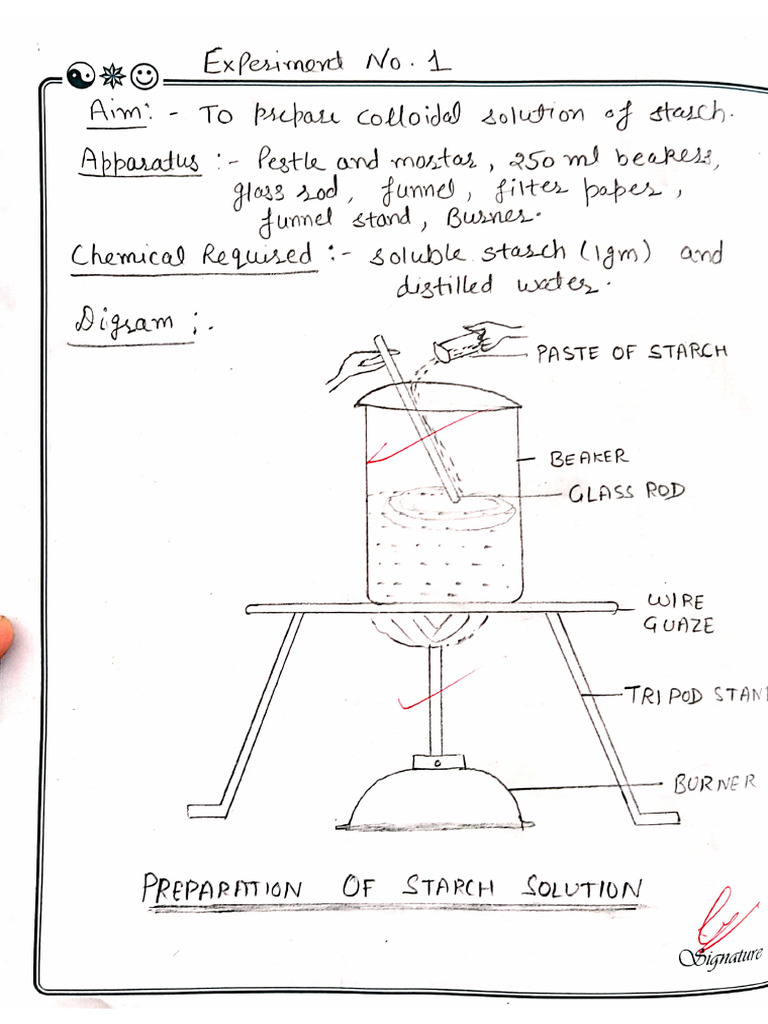 Experiment No. 1
Aim:- To prepare colloidal solution of starch.
Apparatus :- Pestle and mortar, 250 ml beakers,
glass rod, funnel, filter paper,
funnel stand, Burner.
Chemical Required :- soluble starch (1gm) and
distilled water.
Digram :-
PASTE OF STARCH
BEAKER
GLASS ROD
WIRE
GUAZE
TRIPOD STAND
BURNER
PREPARATION OF STARCH SOLUTION
Signature